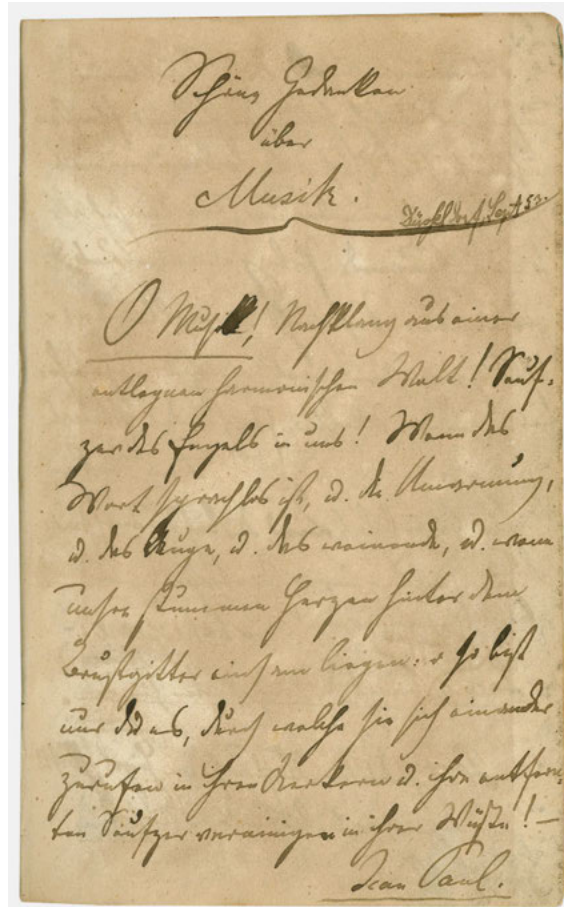 Schöne Gedanken
über
Musik.
Düsseldorf. Sept 53.
O Musik! Nachklang aus einer
entlegnen harmonischen Welt! Seuf-
zer des Engels in uns! Wenn das
Wort sprachlos ist, u. die Umarmung,
u. das Auge, u. das weinende, u. wenn
unsre stummen Herzen hinter dem
Brustgitter einsam liegen: o so bist
nur du es, durch welche sie sich einander
zurufen in ihren Kerkern u. ihre entfern-
ten Seufzer vereinigen in ihrer Wüste! —
Jean Paul.